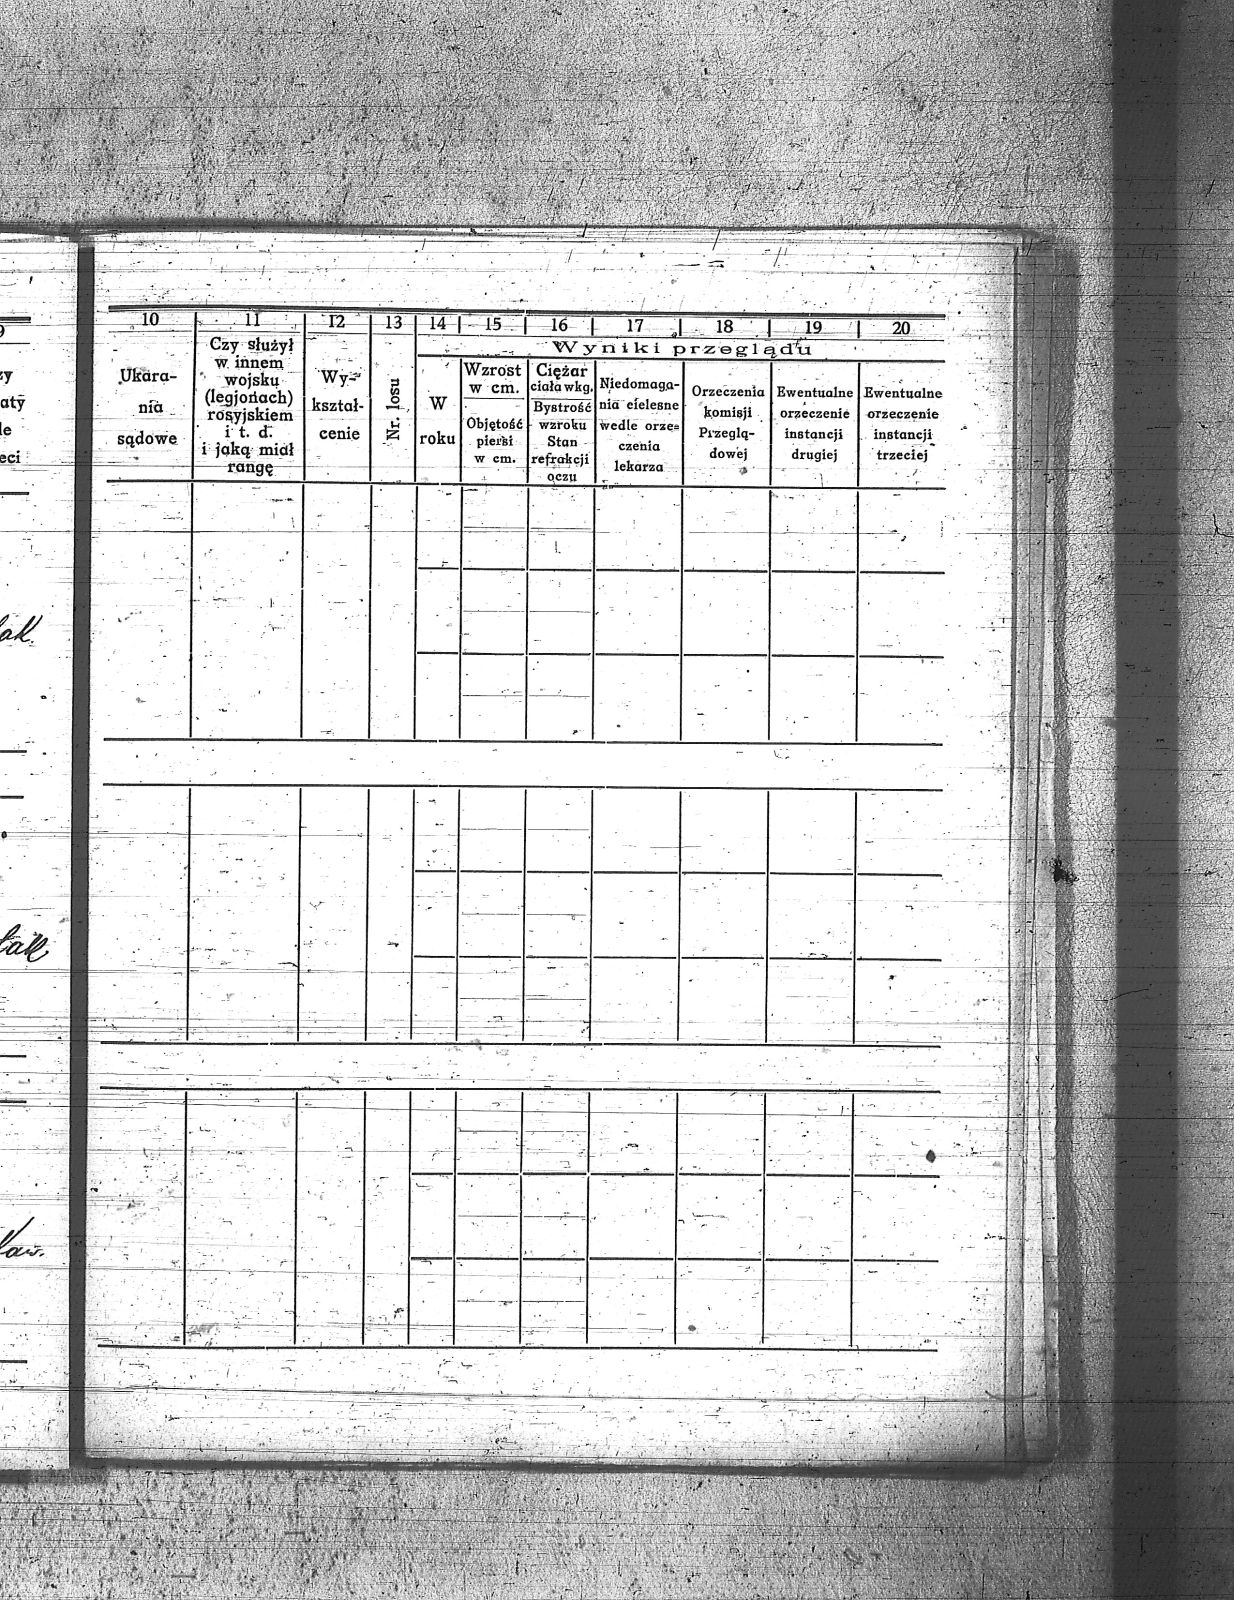 10 11 12 13 14 15 16 17 18 19 20
Wyniki przeglądu
Ukara-
nia
sądowe
Czy służył
w innem
wojsku
(legjonach)
rosyjskiem
i t. d.
i jaką miał
rangę
Wy-
kształ-
cenie
Nr. losu
W
roku
Wzrost
w cm.
Objętość
piersi
w cm.
Ciężar
ciała w kg.
Bystrość
wzroku
Stan
refrakcji
oczu
Niedomaga-
nia cielesne
wedle orze-
czenia
lekarza
Orzeczenia
komisji
Przeglą-
dowej
Ewentualne
orzeczenie
instancji
drugiej
Ewentualne
orzeczenie
instancji
trzeciej
9
zy
aty
le
eci
tak